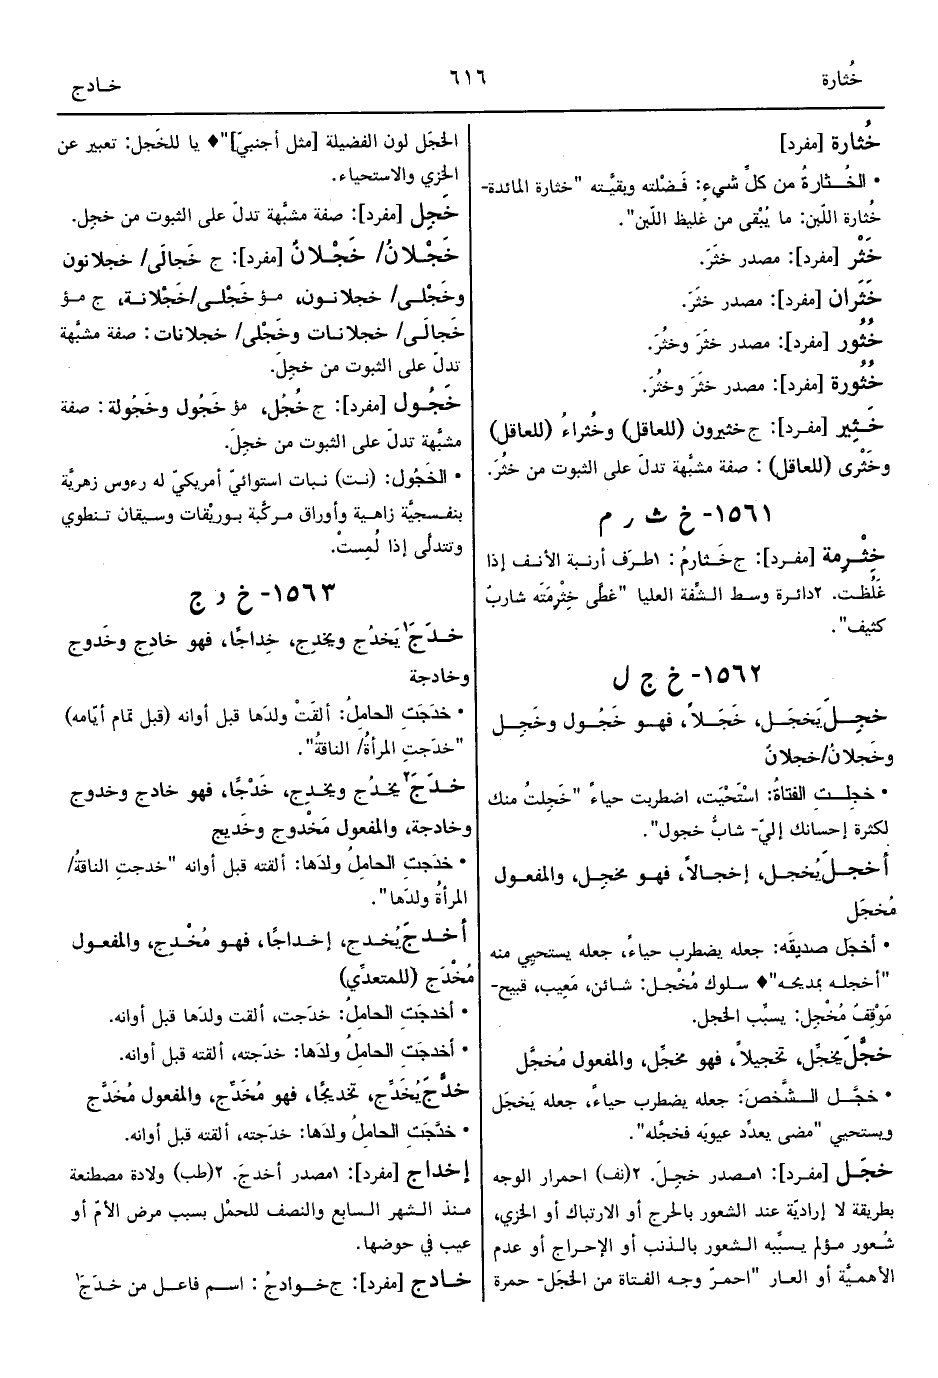 خُثارة
٦١٦
خـادج
خُثارة [مفرد]
• الخُـثارةُ من كلِّ شيءٍ: فَضْلته وبقيَّته "خثارة المائدة-
خُثارة اللّبن: ما يُبْقى من غليظ اللّبن".
خَثْر [مفرد]: مصدر خثَرَ.
خَثَران [مفرد]: مصدر خثَرَ.
خُثُور [مفرد]: مصدر خثَرَ وخثُرَ.
خُثُورة [مفرد]: مصدر خثَرَ وخثُرَ.
خَـثِير [مفـرد]: ج خثيرون (للعاقل) وخُثراءُ (للعاقل)
وخَثْرى (للعاقل) : صفة مشبَّهة تدلّ على الثبوت من خثُرَ.
١٥٦١- خ ث ر م
خِثْرِمة [مفـرد]: ج خَـثارمُ : ١طـرَف أرنبة الأنـف إذا
غَلُظت. ٢دائرة وسط الـشَّفة العليا "غطَّى خِثْرِمَته شاربٌ
كثيف".
١٥٦٢- خ ج ل
خجِـلَ يَخجَـل، خَجَـلاً، فهـو خَجُـول وخَجِـل
وخَجلانُ/خجلانٌ
• خجِلـتِ الفتاةُ: اسْتَحْيَت، اضطربت حياءً "خَجِلتُ منك
لكثرة إحسانك إليّ- شابٌّ خجول".
أخجـلَ يُخجـل، إخجـالاً، فهـو مُخجِـل، والمفعـول
مُخجَل
• أخجَل صديقَه: جعله يضطرب حياءً، جعله يستحيِي منه
"أخجلـه بمديحـه"♦ سـلوك مُخْجـل: شـائن، مَعِيب، قبيح-
مَوْقِفٌ مُخْجِل: يسبِّب الخجل.
خجَّلَ يخجِّل، تخجيلاً، فهو مخجِّل، والمفعول مُخجَّل
• خجَّـل الـشَّخصَ: جعله يضطرب حياءً، جعله يَخجَل
ويستحيي "مضى يعدِّد عيوبَه فخجَّله".
خجَـل [مفـرد]: ١مـصدر خجِـلَ. ٢(نف) احمرار الوجه
بطريقة لا إراديّة عند الشعور بالحرج أو الارتباك أو الخزي،
شُعور مـؤلم يـسبِّبه الـشعور بالـذنب أو الإحـراج أو عدم
الأهميَّة أو العار "احمرّ وجـه الفـتاة من الخجَل- حمرة
الخجَل لون الفضيلة [مثل أجنبيّ]"♦ يا للخَجل: تعبير عن
الخِزي والاستحياء.
خَجِل [مفرد]: صفة مشبَّهة تدلّ على الثبوت من خجِل.
خَجْـلانُ/ خَجْـلانٌ [مفرد]: ج خَجالَى/ خجلانون
وخَجْلـى/ خجلانـون، مـؤ خَجْلـى/خَجْلانـة، ج مـؤ
خَجالَـى/ خجلانـات وخَجْلى/ خجلانات: صفة مشبَّهة
تدلّ على الثبوت من خجِلَ.
خَجُـول [مفرد]: ج خُجُل، مؤ خَجُول وخَجُولة: صفة
مشبَّهة تدلّ على الثبوت من خجِلَ.
• الخَجُول: (نـت) نـبات استوائيّ أمريكيّ له رءوس زهريَّة
بنفسجيَّة زاهية وأوراق مـركَّبة بـوريْقات وسـيقان تـنطوي
وتتدلَّى إذا لُمِستْ.
١٥٦٣- خ د ج
خـدَجَ١ يَخدُج ويخدِج، خِداجًا، فهو خادج وخَدوج
وخادجة
• خدَجَتِ الحاملُ: ألقتْ ولدَها قبل أوانه (قبل تمام أيّامه)
"خدَجتِ المرأةُ/ الناقةُ".
خـدَجَ٢ يخـدُج ويخـدِج، خَدْجًـا، فهو خادج وخدوج
وخادجة، والمفعول مَخْدوج وخَديج
• خدَجَتِ الحاملُ ولدَها: ألقته قبل أوانه "خدجتِ الناقةُ/
المرأةُ ولدَها".
أخـدجَ يُخـدج، إخـداجًـا، فهـو مُخْـدِج، والمفعـول
مُخْدَج (للمتعدِّي)
• أخدجَتِ الحاملُ: خدَجت، ألقت ولدَها قبل أوانه.
• أخدجَتِ الحاملُ ولدَها: خدَجته، ألقته قبل أوانه.
خدَّجَ يُخَدِّج، تخديجًا، فهو مُخَدِّج، والمفعول مُخَدَّج
• خدَّجَتِ الحاملُ ولدَها: خدَجته، ألقته قبل أوانه.
إخداج [مفرد]: ١مصدر أخدجَ. ٢(طب) ولادة مصطنعة
مـنذ الـشهر الـسابع والنصف للحمْل بسبب مرض الأمّ أو
عيب في حوضها.
خـادج [مفرد]: ج خـوادجُ : اسـم فاعـل من خـدَجَ١